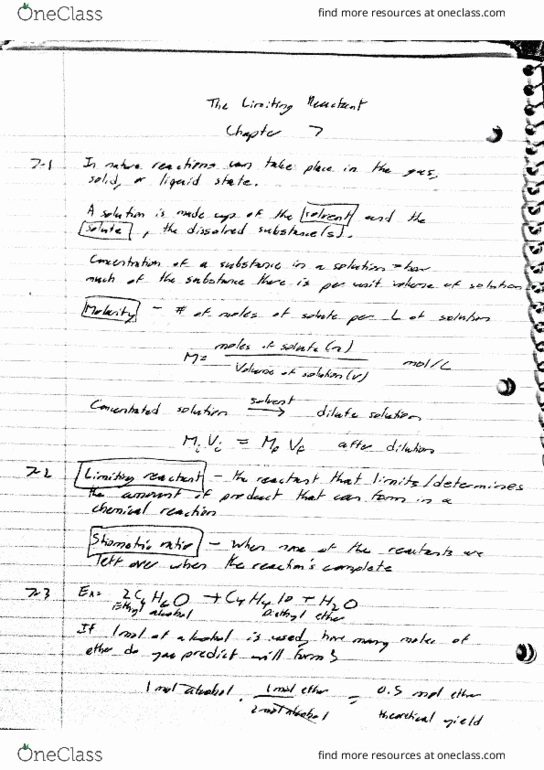 OneClass
find more resources at oneclass.com
The Limiting Reactant
Chapter 7
7-1 In nature reactions can take place in the gas,
solid, or liquid state.
A solution is made up of the solvent and the
solute, the dissolved substance(s).
Concentration of a substance in a solution → how
much of the substance there is per unit volume of solution
Molarity - # of moles of solute per L of solution
M = moles of solute (n) / Volume of solution (v) mol/L
solvent
Concentrated solution → dilute solution
Mi Vi = Mf Vf after dilution
7-2 Limiting reactant - the reactant that limits/determines
the amount of product that can form in a
chemical reaction
- When none of the reactants are
left over when the reaction's complete
7-3 Ex: 2C2H6O → C4H10 + H2O
Ethyl alcohol Diethyl ether
If 1 mol of alcohol is used, how many moles of
ether do you predict will form?
1 mol alcohol · 1 mol ether / 2 mol alcohol = 0.5 mol ether
theoretical yield
OneClass
find more resources at oneclass.com